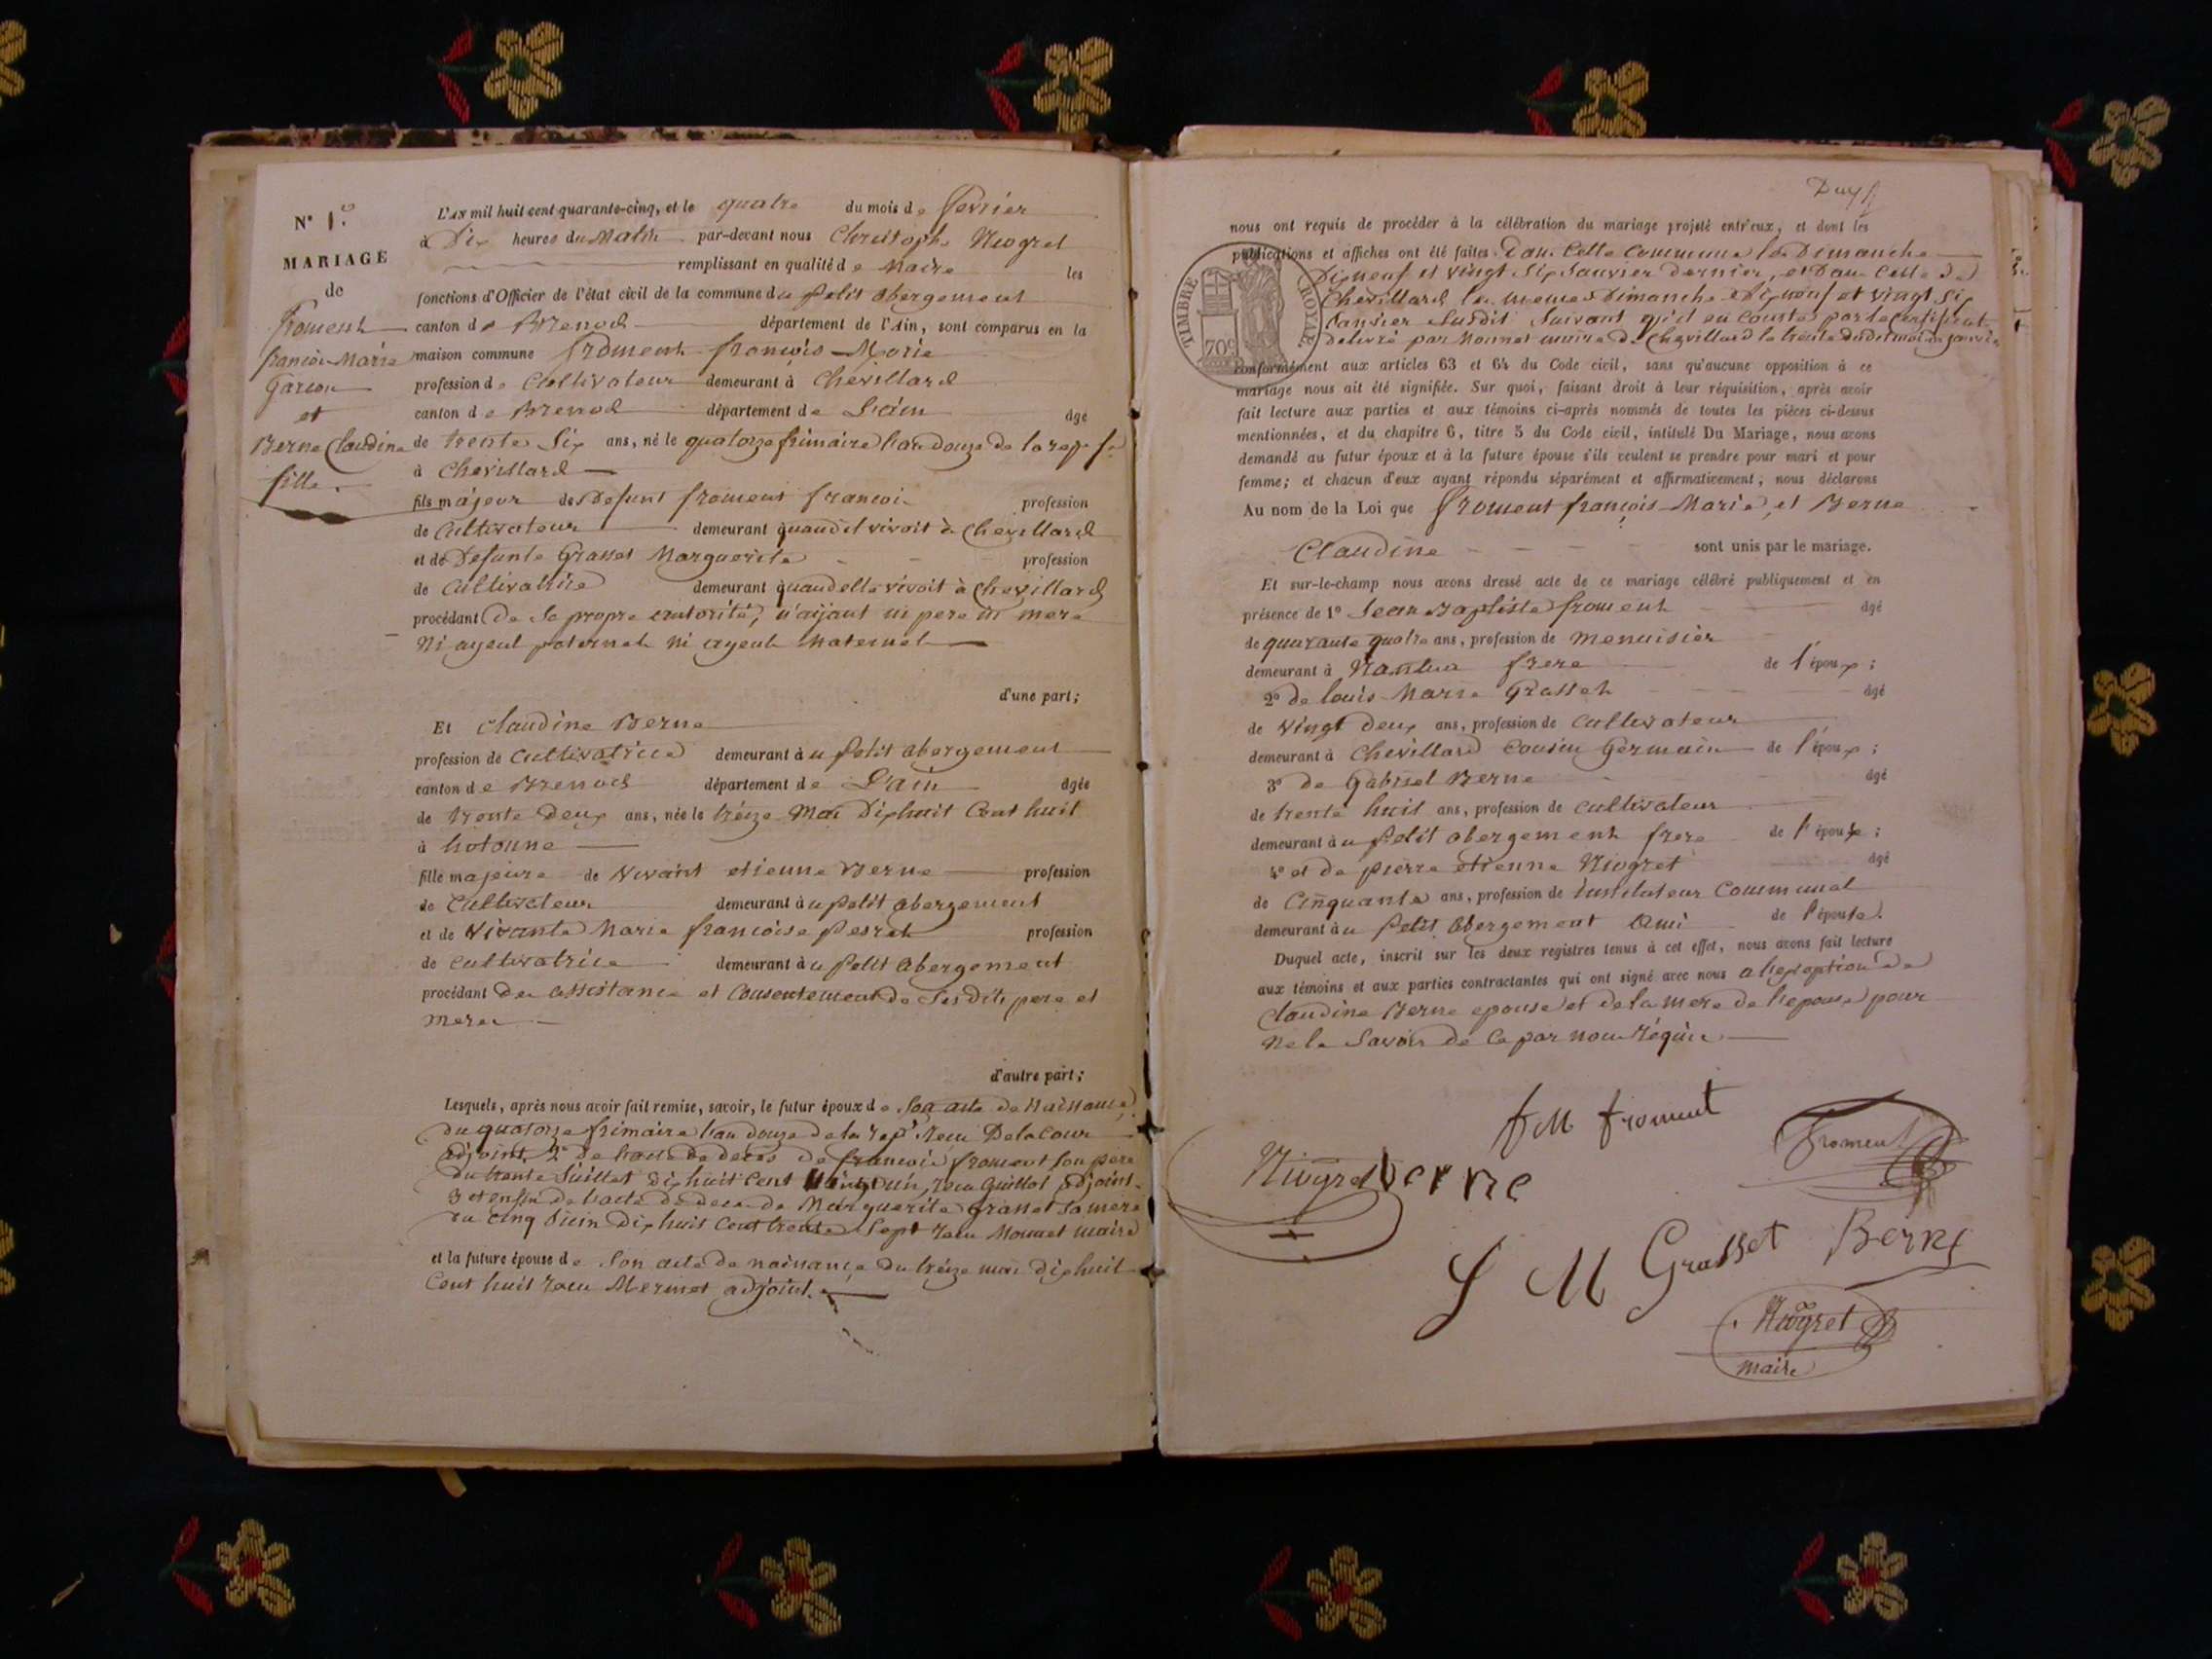 N° 1.er
MARIAGE
de
Froment
françois Marie
Garçon
et
Berne Claudine
fille.
L'AN mil huit cent quarante-cinq, et le quatre du mois de fevrier
à Dix heures du Matin par-devant nous Christophe Niogret
remplissant en qualité de Maire les
fonctions d'Officier de l'état civil de la commune du petit abergement
canton de Brenod département de l'Ain, sont comparus en la
maison commune froment françois-Marie
profession de Cultivateur demeurant à Chevillard
canton de Brenod département de L'ain âgé
de trente Six ans, né le quatorze frimaire l'an douze de la rep. fr
à Chevillard
fils majeur de Defunt froment francoi profession
de Cultivateur demeurant quand il vivoit à Chevillard
et de Defunte Grasset Marguerite profession
de Cultivatrice demeurant quand elle vivoit à Chevillard
procédant de Sa propre autorité, n'aijant ni pere ni mere
Ni ayeul paternel ni ayeul Maternel
d'une part;
Et Claudine Berne
profession de Cultivatrice demeurant à u petit abergement
canton de Brenod département de L'ain âgée
de trente deux ans, née le treize Mai Dixhuit Cent huit
à hotonne
fille majeure de Vivant etienne Berne profession
de Cultivateur demeurant à u petit abergement
et de Vivante Marie françoise Pesret profession
de Cultivatrice demeurant à u petit abergement
procédant de assistance et Consentement de Sesdits pere et
mere
d'autre part;
Lesquels, après nous avoir fait remise, savoir, le futur époux de Son acte de Naissance
du quatorze frimaire l'an douze de la rep. recu Delacour
adjoint, 2° de l'acte de deces de francois froment Son pere
du trente Juillet dixhuit Cent vingt un, recu Guillot adjoint
3 et enfin de l'acte de deces de Marguerite Grasset Sa mere
du cinq Juin Dixhuit Cent trente Sept recu Monnet maire
et la future épouse de Son acte de naissance du treize mai dixhuit
Cent huit recu Mermet adjoint.
nous ont requis de procéder à la célébration du mariage projeté entr'eux, et dont les
publications et affiches ont été faites Dans Cette Commune les Dimanche
Dixneuf et vingt Six Janvier Dernier, et Dans Celle de
Chevillard les memes Dimanche Dixneuf et vingt Six
Janvier Susdit Suivant qu'il en Conste par le Certificat
delivré par Monnet maire de Chevillard le trente dudit mois de janvier
TIMBRE ROYAL
70c
conformément aux articles 63 et 64 du Code civil, sans qu'aucune opposition à ce
mariage nous ait été signifiée. Sur quoi, faisant droit à leur réquisition, après avoir
fait lecture aux parties et aux témoins ci-après nommés de toutes les pièces ci-dessus
mentionnées, et du chapitre 6, titre 5 du Code civil, intitulé Du Mariage, nous avons
demandé au futur époux et à la future épouse s'ils veulent se prendre pour mari et pour
femme; et chacun d'eux ayant répondu séparément et affirmativement, nous déclarons
Au nom de la Loi que froment françois-Marie, et Berne
Claudine sont unis par le mariage.
Et sur-le-champ nous avons dressé acte de ce mariage célébré publiquement et en
présence de 1° Jean Baptiste froment âgé
de quarante quatre ans, profession de menuisier
demeurant à Nantua frere de l'époux;
2° de louis-Marie Grasset âgé
de vingt deux ans, profession de Cultivateur
demeurant à Chevillard Cousin Germain de l'époux;
3° de Gabriel Berne âgé
de trente huit ans, profession de Cultivateur
demeurant à u petit abergement frere de l'épouse;
4° et de pierre etienne Niogret âgé
de Cinquante ans, profession de instituteur Communal
demeurant à u petit abergement Ami de l'épouse.
Duquel acte, inscrit sur les deux registres tenus à cet effet, nous avons fait lecture
aux témoins et aux parties contractantes qui ont signé avec nous a l'exception de
Claudine Berne epouse et de la mere de l'epouse pour
Ne le Savoir de Ce par nous requise.
f M froment
Froment
Niogret
berne
L M Grasset
Berne
Niogret
maire